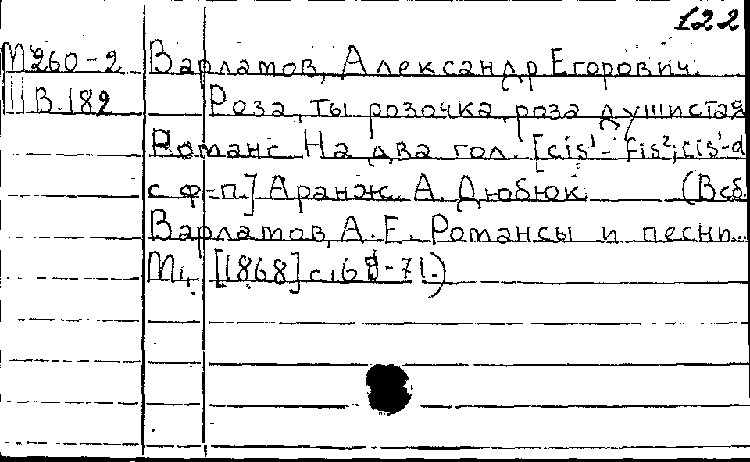 122
М260-2 Варламов, Александр Егорович.
II В.182 Роза, ты розочка, роза душистая
Романс. На два гол. [cis¹- fis²; cis¹-d
с ф-п.] Аранж. А. Дюбюк. (В сб.
Варламов, А.Е. Романсы и песни...
М., [1868] с. 69-71.)